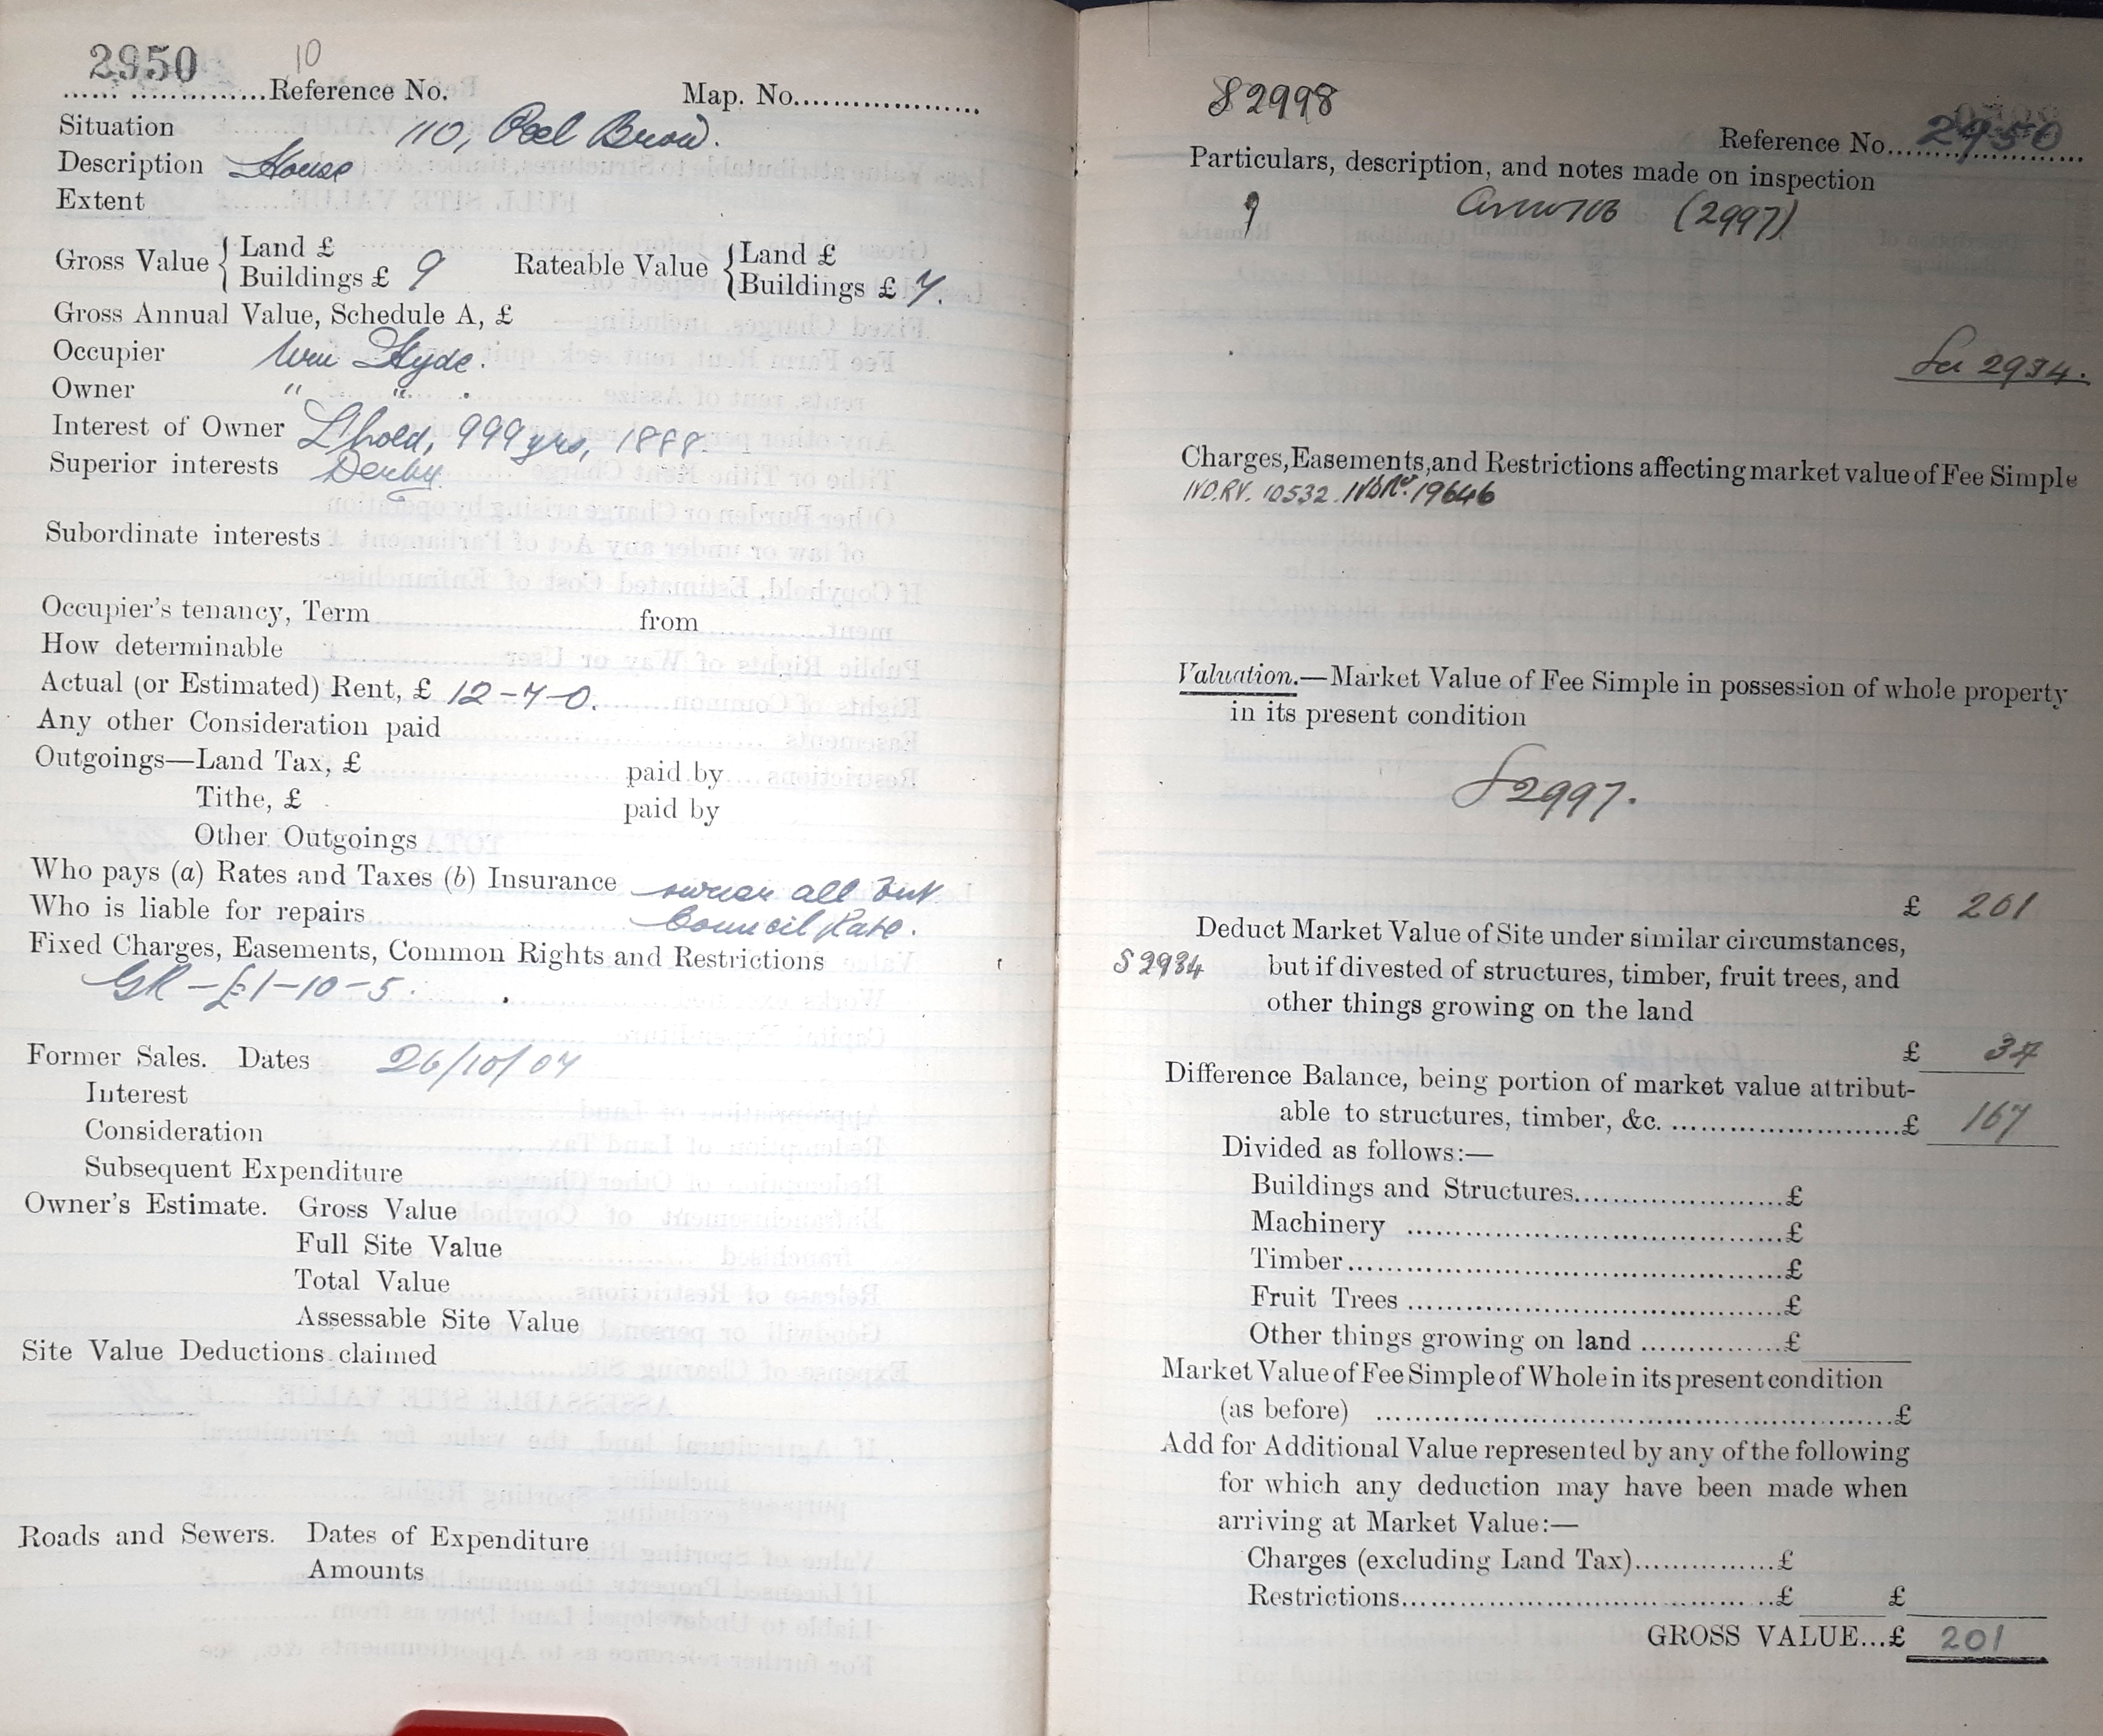 2950 10
Reference No. Map. No.
Situation 110, Peel Brow.
Description House
Extent
Gross Value { Land £
Buildings £ 9
Rateable Value { Land £
Buildings £ 7.
Gross Annual Value, Schedule A, £
Occupier Wm Hyde.
Owner " " .
Interest of Owner L'hold, 999 yrs, 1888.
Superior interests Derby.
Subordinate interests
Occupier's tenancy, Term from
How determinable
Actual (or Estimated) Rent, £ 12-7-0.
Any other Consideration paid
Outgoings—Land Tax, £ paid by
Tithe, £ paid by
Other Outgoings
Who pays (a) Rates and Taxes (b) Insurance owner all but
Who is liable for repairs Council Rate.
Fixed Charges, Easements, Common Rights and Restrictions
GR - £1-10-5.
Former Sales. Dates 26/10/04
Interest
Consideration
Subsequent Expenditure
Owner's Estimate. Gross Value
Full Site Value
Total Value
Assessable Site Value
Site Value Deductions claimed
Roads and Sewers. Dates of Expenditure
Amounts
S 2998
Reference No. 2950
Particulars, description, and notes made on inspection
9 (2997)
2934.
Charges, Easements, and Restrictions affecting market value of Fee Simple
10532 19646
Valuation.—Market Value of Fee Simple in possession of whole property
in its present condition
S 2997.
£ 201
Deduct Market Value of Site under similar circumstances,
S 2934 but if divested of structures, timber, fruit trees, and
other things growing on the land
£ 34
Difference Balance, being portion of market value attribut-
able to structures, timber, &c. £ 167
Divided as follows:—
Buildings and Structures £
Machinery £
Timber £
Fruit Trees £
Other things growing on land £
Market Value of Fee Simple of Whole in its present condition
(as before) £
Add for Additional Value represented by any of the following
for which any deduction may have been made when
arriving at Market Value:—
Charges (excluding Land Tax) £
Restrictions £ £
GROSS VALUE...£ 201